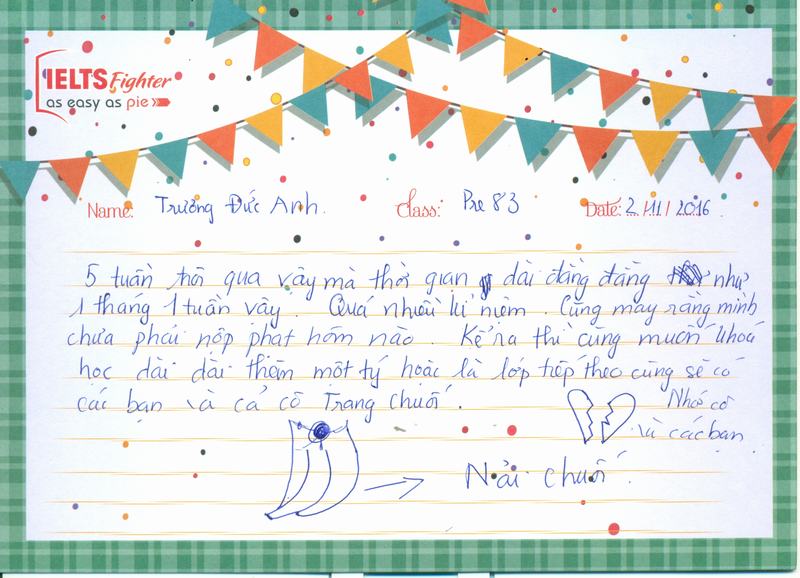 IELTS Fighter
as easy as pie
Name: Trương Đức Anh. Class: Pre 83 Date: 2/11/2016
5 tuần trôi qua vậy mà thời gian dài đằng đẵng như
1 tháng 1 tuần vậy. Quá nhiều kỉ niệm. Cũng may rằng mình
chưa phải nộp phạt hôm nào. Kể ra thì cũng muốn khoá
học dài dài thêm một tý hoặc là lớp tiếp theo cũng sẽ có
các bạn và cả cô Trang Chuối.
Nhớ cô
và các bạn
Nải chuối.